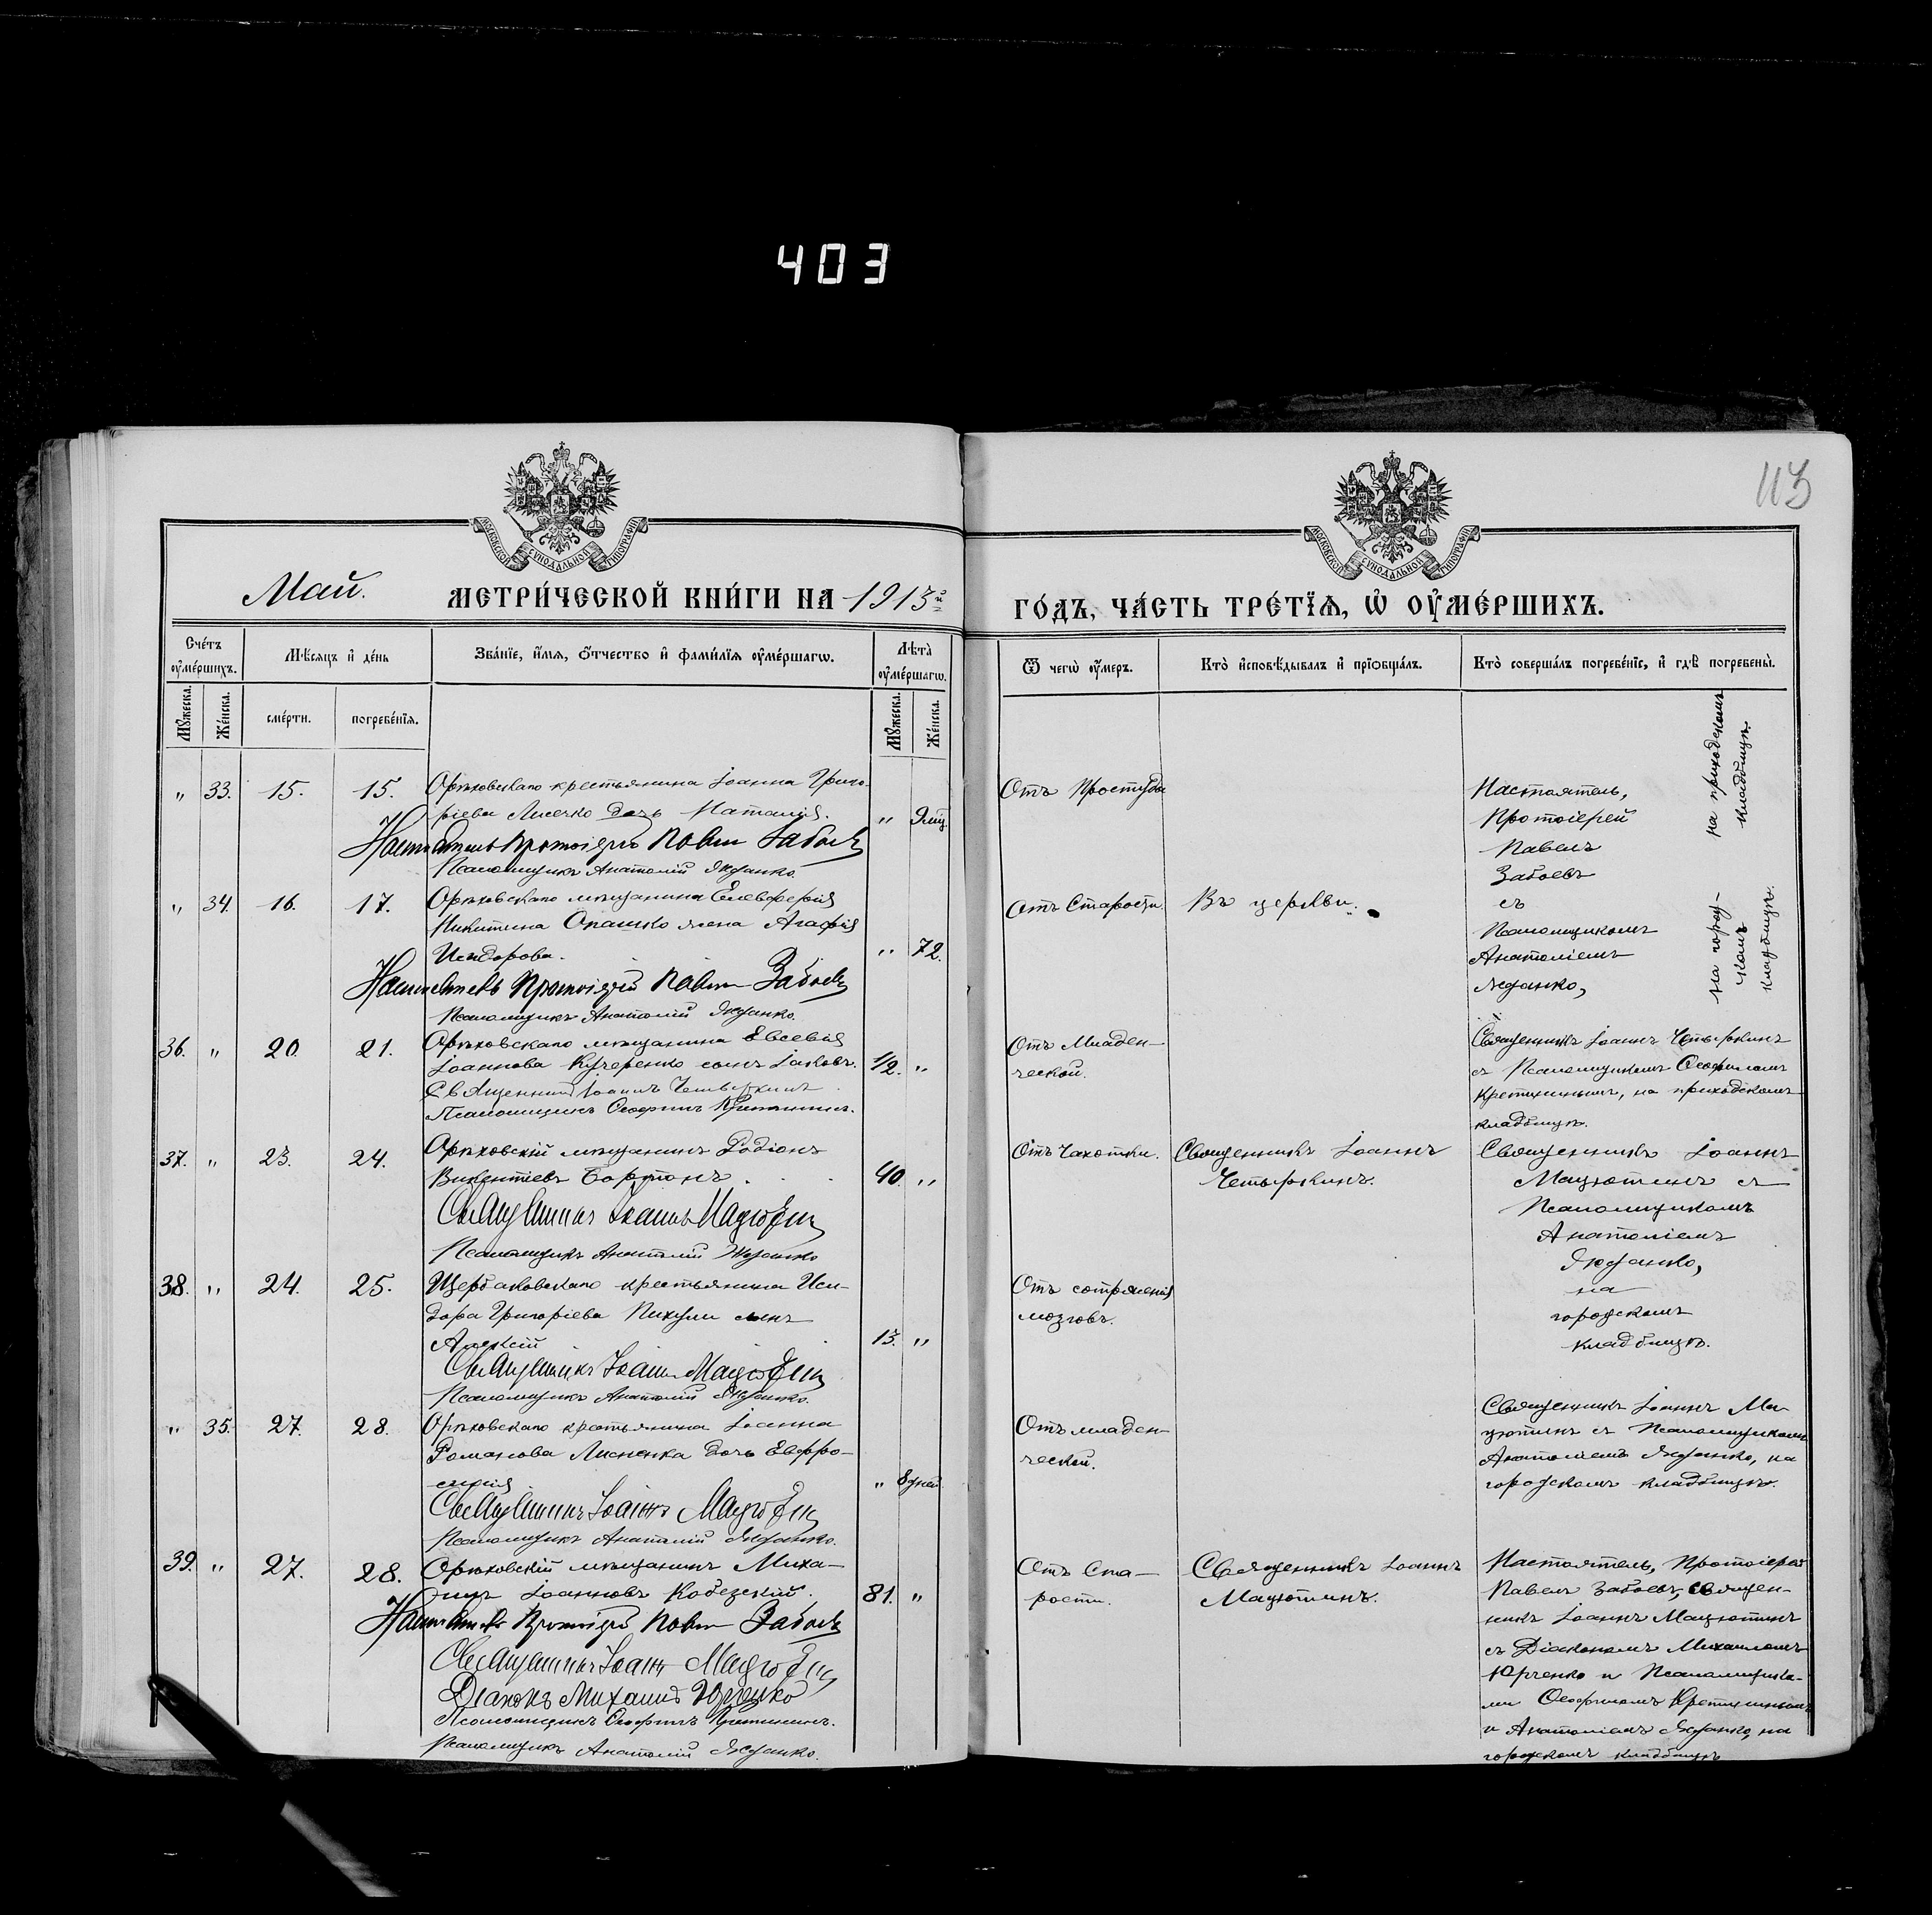 403
113
МОСКОВСКОЙ СУНОДАЛЬНОЙ ТИПОГРАФІИ
МОСКОВСКОЙ СУНОДАЛЬНОЙ ТИПОГРАФІИ
Май. МЕТРИ́ЧЕСКОЙ КНИ́ГИ НА 1913й
ГО́ДЪ, ЧА́СТЬ ТРЕ́ТЇѦ, Ѡ҆ ОУ҆МЕ́РШИХЪ.
Сче́тъ оу҆ме́ршихъ.
Мѣ́сяцъ и҆ де́нь
Зва́нїе, и҆́мѧ, ѻ҆́тчество и҆ фами́лїѧ оу҆ме́ршагѡ.
Лѣ́та̀ оу҆ме́ршагѡ.
Ѿ чегѡ̀ оу҆́меръ.
Кто̀ и҆сповѣ́дывалъ и҆ прїѡбща́лъ.
Кто̀ соверша́лъ погребе́нїе, и҆ гдѣ̀ погребены̀.
Мꙋ́жеска.
Же́нска.
сме́рти.
погребе́нїѧ.
Мꙋ́жеска.
Же́нска.
„ 33. 15. 15. Орѣховскаго крестьянина Іоанна Григо-
ріева Лисечко дочь Наталія. „
Настоятель Протоіерей Павелъ Забоевъ
Псаломщикъ Анатолій Яжданко.
Отъ Простуды
Настоятель,
Протоіерей
Павелъ
Забоевъ
съ
Псаломщикомъ
Анатоліемъ
Яжданко,
на приходскомъ
кладбищѣ.
на город-
скомъ
кладбищѣ.
„ 34. 16. 17. Орѣховскаго мѣщанина Елевферія
Никитина Опашко жена Агафія
Исидорова. „ 72.
Настоятель Протоіерей Павелъ Забоевъ
Псаломщикъ Анатолій Яжданко.
Отъ Старости. Въ церкви.
36. „ 20. 21. Орѣховскаго мѣщанина Евсевія
Іоаннова Кучеренко сынъ Іаковъ. 1/2. „
Священникъ Іоаннъ Четыркинъ
Псаломщикъ Ѳеофилъ Кретининъ.
Отъ Младен-
ческой.
Священникъ Іоаннъ Четыркинъ
съ Псаломщикомъ Ѳеофиломъ
Кретининымъ, на приходскомъ
кладбищѣ.
37. „ 23. 24. Орѣховскій мѣщанинъ Родіонъ
Викентіевъ Бортонъ. 40. „
Священникъ Іоаннъ Мацютинъ
Псаломщикъ Анатолій Яжданко
Отъ Чахотки. Священникъ Іоаннъ
Четыркинъ.
Священникъ Іоаннъ
Мацютинъ съ
Псаломщикомъ
Анатоліемъ
Яжданко,
на
городскомъ
кладбищѣ.
38. „ 24. 25. Щербаковскаго крестьянина Иси-
дора Григоріева Пикули сынъ
Алексій 13. „
Священникъ Іоаннъ Мацютинъ
Псаломщикъ Анатолій Яжданко.
Отъ сотрясенія
мозговъ.
„ 35. 27. 28. Орѣховскаго крестьянина Іоанна
Романова Лисненка дочь Евфро-
синія „ 8 дней.
Священникъ Іоаннъ Мацютинъ
Псаломщикъ Анатолій Яжданко.
Отъ младен-
ческой.
Священникъ Іоаннъ Ма-
цютинъ съ Псаломщикомъ
Анатоліемъ Яжданко, на
городскомъ кладбищѣ.
39. „ 27. 28. Орѣховскій мѣщанинъ Миха-
илъ Іоанновъ Кобезскій. 81. „
Настоятель Протоіерей Павелъ Забоевъ
Священникъ Іоаннъ Мацютинъ
Діаконъ Михаилъ Юрченко
Псаломщикъ Ѳеофилъ Кретининъ.
Псаломщикъ Анатолій Яжданко.
Отъ Ста-
рости.
Священникъ Іоаннъ
Мацютинъ.
Настоятель, Протоіерей
Павелъ Забоевъ, священ-
никъ Іоаннъ Мацютинъ
съ Діакономъ Михаиломъ
Юрченко и Псаломщика-
ми Ѳеофиломъ Кретининымъ
и Анатоліемъ Яжданко, на
городскомъ кладбищѣ